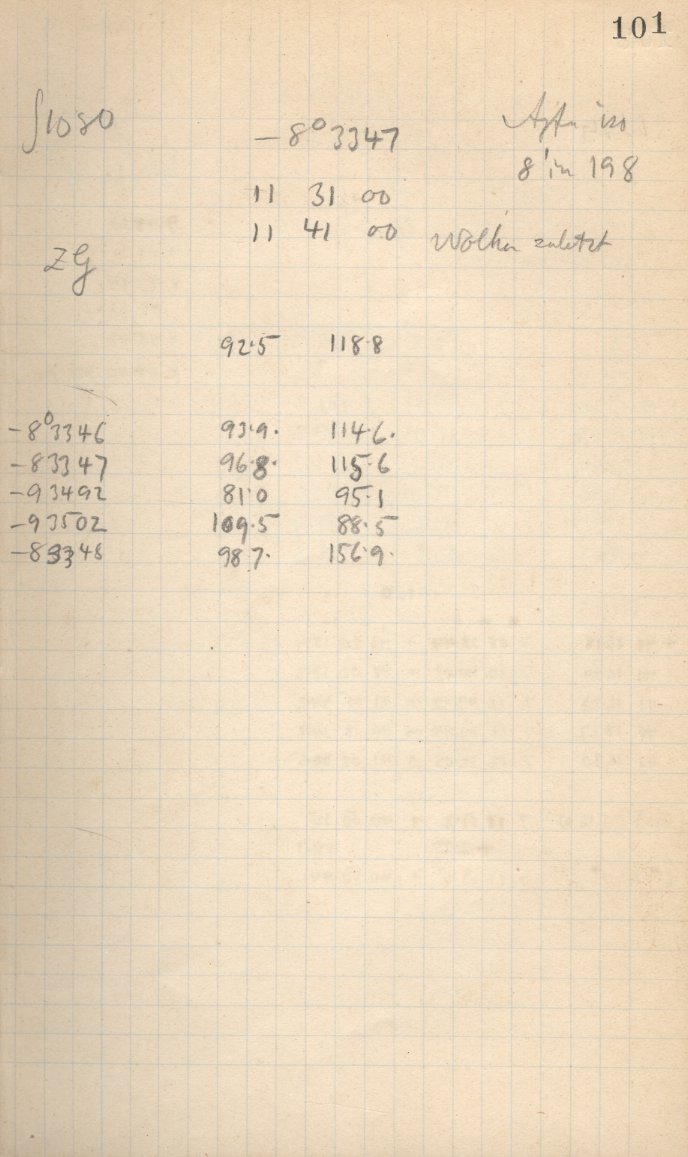 101
∫1080 -8°3347 Agfa iso
8' in 198
11 31 00
11 41 00 Wolken zuletzt
ZG
92.5 118.8
-8°3346 93.9. 114.6.
-83347 96.8. 115.6
-93492 81.0 95.1
-93502 109.5 88.5
-83348 98.7. 156.9.